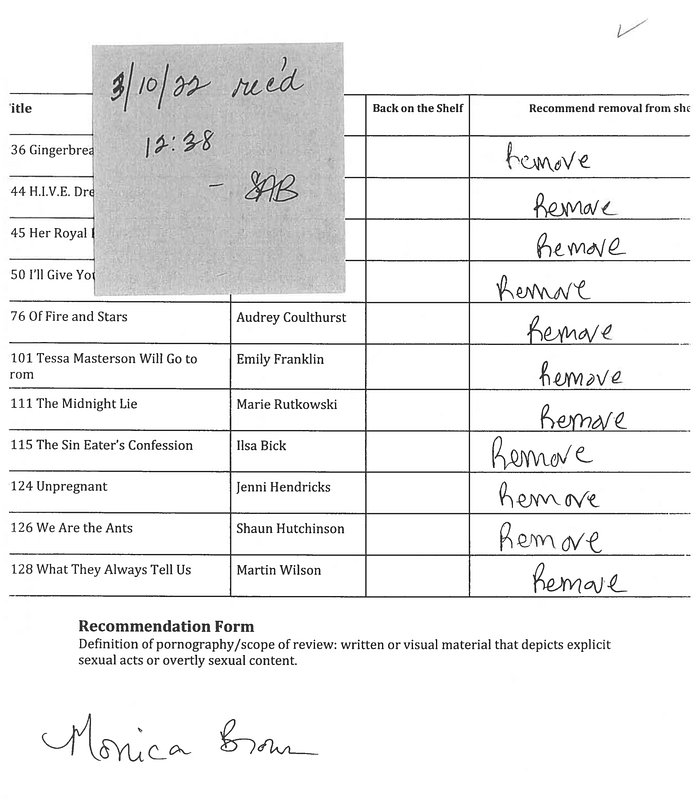 3/10/22 rec'd
12:38
- SAB
itle Back on the Shelf Recommend removal from she
36 Gingerbrea Remove
44 H.I.V.E. Dre Remove
45 Her Royal Remove
50 I'll Give You Remove
76 Of Fire and Stars Audrey Coulthurst Remove
101 Tessa Masterson Will Go to Emily Franklin Remove
rom
111 The Midnight Lie Marie Rutkowski Remove
115 The Sin Eater's Confession Ilsa Bick Remove
124 Unpregnant Jenni Hendricks Remove
126 We Are the Ants Shaun Hutchinson Remove
128 What They Always Tell Us Martin Wilson Remove
Recommendation Form
Definition of pornography/scope of review: written or visual material that depicts explicit
sexual acts or overtly sexual content.
Monica Brown